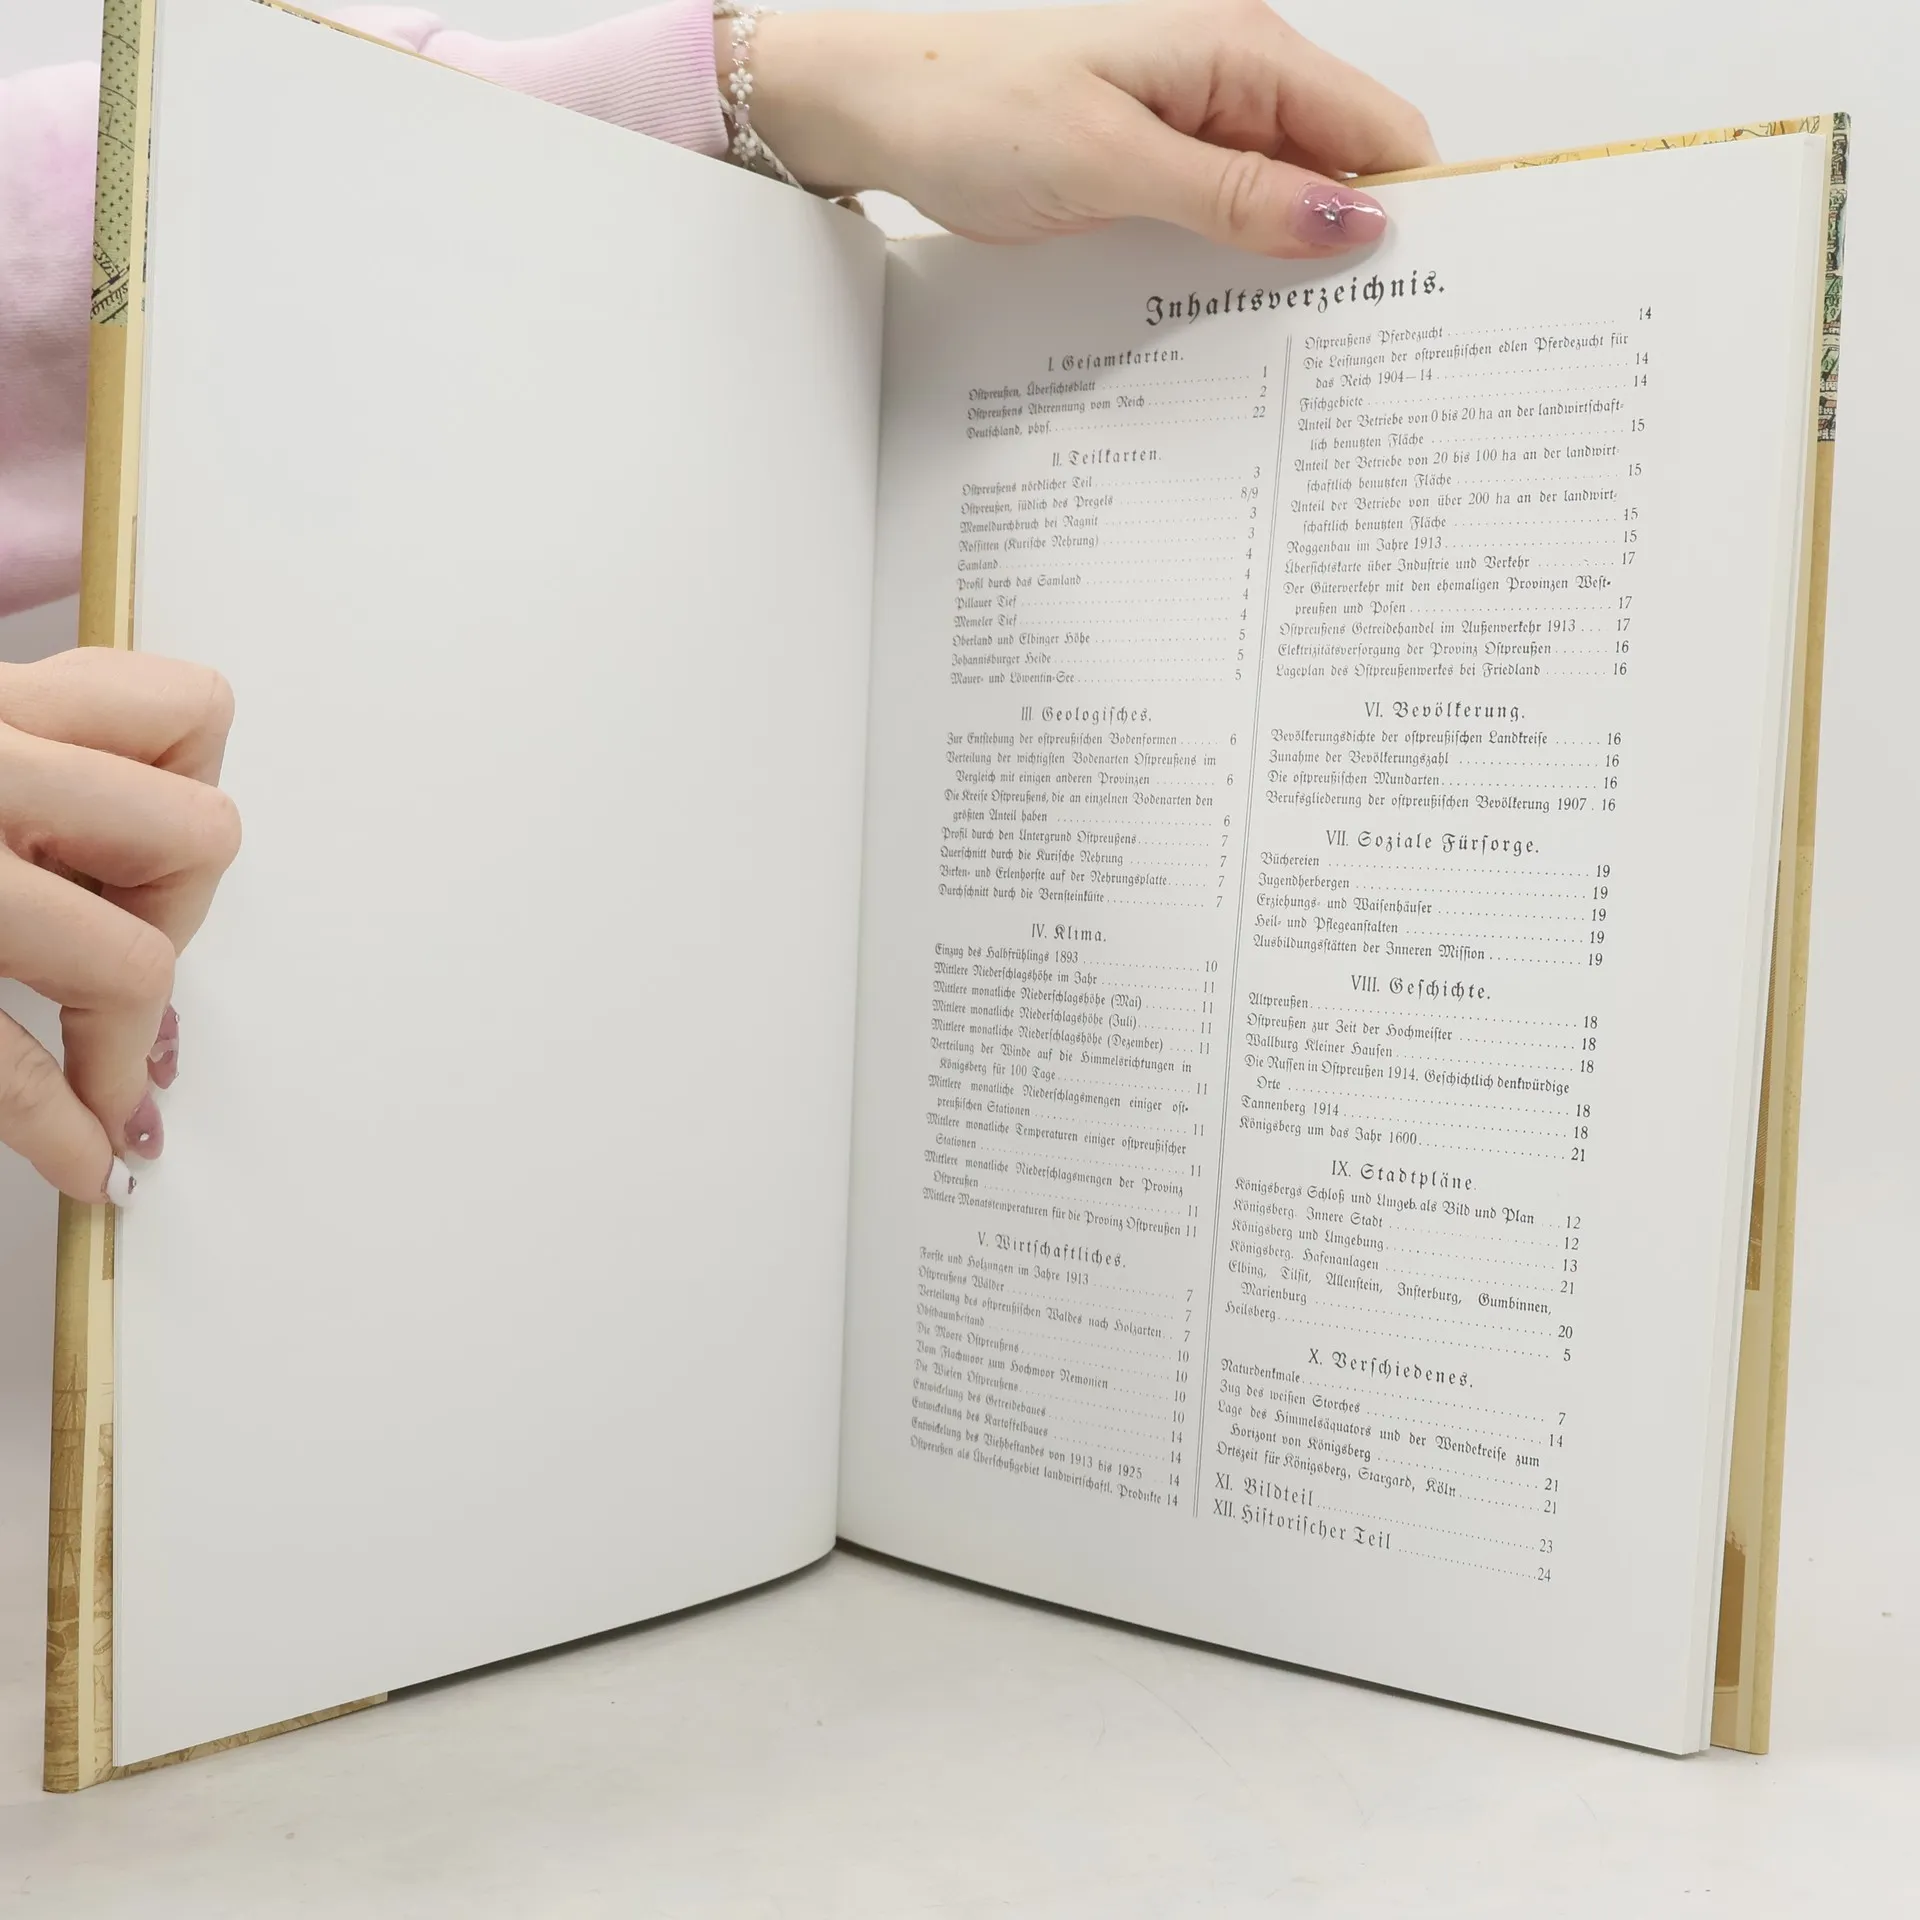 Inhaltsverzeichnis.
I. Gesamtkarten.
Ostpreußen, Übersichtsblatt . . . . . 1
Ostpreußens Abtrennung vom Reich . . . . . 2
Deutschland, phys. . . . . . 22
II. Teilkarten.
Ostpreußens nördlicher Teil . . . . . 3
Ostpreußen, südlich des Pregels . . . . . 8/9
Memeldurchbruch bei Ragnit . . . . . 3
Rossitten (Kurische Nehrung) . . . . . 3
Samland . . . . . 4
Profil durch das Samland . . . . . 4
Pillauer Tief . . . . . 4
Memeler Tief . . . . . 4
Oberland und Elbinger Höhe . . . . . 5
Johannisburger Heide . . . . . 5
Mauer- und Löwentin-See . . . . . 5
III. Geologisches.
Zur Entstehung der ostpreußischen Bodenformen . . . . . 6
Verteilung der wichtigsten Bodenarten Ostpreußens im
Vergleich mit einigen anderen Provinzen . . . . . 6
Die Kreise Ostpreußens, die an einzelnen Bodenarten den
größten Anteil haben . . . . . 6
Profil durch den Untergrund Ostpreußens . . . . . 7
Querschnitt durch die Kurische Nehrung . . . . . 7
Birken- und Erlenhorste auf der Nehrungsplatte . . . . . 7
Durchschnitt durch die Bernsteinküste . . . . . 7
IV. Klima.
Einzug des Halbfrühlings 1893 . . . . . 10
Mittlere Niederschlagshöhe im Jahr . . . . . 11
Mittlere monatliche Niederschlagshöhe (Mai) . . . . . 11
Mittlere monatliche Niederschlagshöhe (Juli) . . . . . 11
Mittlere monatliche Niederschlagshöhe (Dezember) . . . . 11
Verteilung der Winde auf die Himmelsrichtungen in
Königsberg für 100 Tage . . . . . 11
Mittlere monatliche Niederschlagsmengen einiger ost-
preußischen Stationen . . . . . 11
Mittlere monatliche Temperaturen einiger ostpreußischer
Stationen . . . . . 11
Mittlere monatliche Niederschlagsmengen der Provinz
Ostpreußen . . . . . 11
Mittlere Monatstemperaturen für die Provinz Ostpreußen 11
V. Wirtschaftliches.
Forste und Holzungen im Jahre 1913 . . . . . 7
Ostpreußens Wälder . . . . . 7
Verteilung des ostpreußischen Waldes nach Holzarten . . 7
Obstbaumbestand . . . . . 10
Die Moore Ostpreußens . . . . . 10
Vom Flachmoor zum Hochmoor Nemonien . . . . . 10
Die Wiesen Ostpreußens . . . . . 10
Entwickelung des Getreidebaues . . . . . 14
Entwickelung des Kartoffelbaues . . . . . 14
Entwickelung des Viehbestandes von 1913 bis 1925 . . 14
Ostpreußen als Überschußgebiet landwirtschaftl. Produkte 14
Ostpreußens Pferdezucht . . . . . 14
Die Leistungen der ostpreußischen edlen Pferdezucht für
das Reich 1904—14 . . . . . 14
Fischgebiete . . . . . 14
Anteil der Betriebe von 0 bis 20 ha an der landwirtschaft-
lich benutzten Fläche . . . . . 15
Anteil der Betriebe von 20 bis 100 ha an der landwirt-
schaftlich benutzten Fläche . . . . . 15
Anteil der Betriebe von über 200 ha an der landwirt-
schaftlich benutzten Fläche . . . . . 15
Roggenbau im Jahre 1913 . . . . . 15
Übersichtskarte über Industrie und Verkehr . . . . . 17
Der Güterverkehr mit den ehemaligen Provinzen West-
preußen und Posen . . . . . 17
Ostpreußens Getreidehandel im Außenverkehr 1913 . . . 17
Elektrizitätsversorgung der Provinz Ostpreußen . . . . . 16
Lageplan des Ostpreußenwerkes bei Friedland . . . . . 16
VI. Bevölkerung.
Bevölkerungsdichte der ostpreußischen Landkreise . . . . . 16
Zunahme der Bevölkerungszahl . . . . . 16
Die ostpreußischen Mundarten . . . . . 16
Berufsgliederung der ostpreußischen Bevölkerung 1907 . 16
VII. Soziale Fürsorge.
Büchereien . . . . . 19
Jugendherbergen . . . . . 19
Erziehungs- und Waisenhäuser . . . . . 19
Heil- und Pflegeanstalten . . . . . 19
Ausbildungsstätten der Inneren Mission . . . . . 19
VIII. Geschichte.
Altpreußen . . . . . 18
Ostpreußen zur Zeit der Hochmeister . . . . . 18
Wallburg Kleiner Hausen . . . . . 18
Die Russen in Ostpreußen 1914. Geschichtlich denkwürdige
Orte . . . . . 18
Tannenberg 1914 . . . . . 18
Königsberg um das Jahr 1600 . . . . . 21
IX. Stadtpläne.
Königsbergs Schloß und Umgeb. als Bild und Plan . . . 12
Königsberg. Innere Stadt . . . . . 12
Königsberg und Umgebung . . . . . 13
Königsberg. Hafenanlagen . . . . . 21
Elbing, Tilsit, Allenstein, Insterburg, Gumbinnen,
Marienburg . . . . . 20
Heilsberg . . . . . 5
X. Verschiedenes.
Naturdenkmale . . . . . 7
Zug des weißen Storches . . . . . 14
Lage des Himmelsäquators und der Wendekreise zum
Horizont von Königsberg . . . . . 21
Ortszeit für Königsberg, Stargard, Köln . . . . . 21
XI. Bildteil . . . . . 23
XII. Historischer Teil . . . . . 24